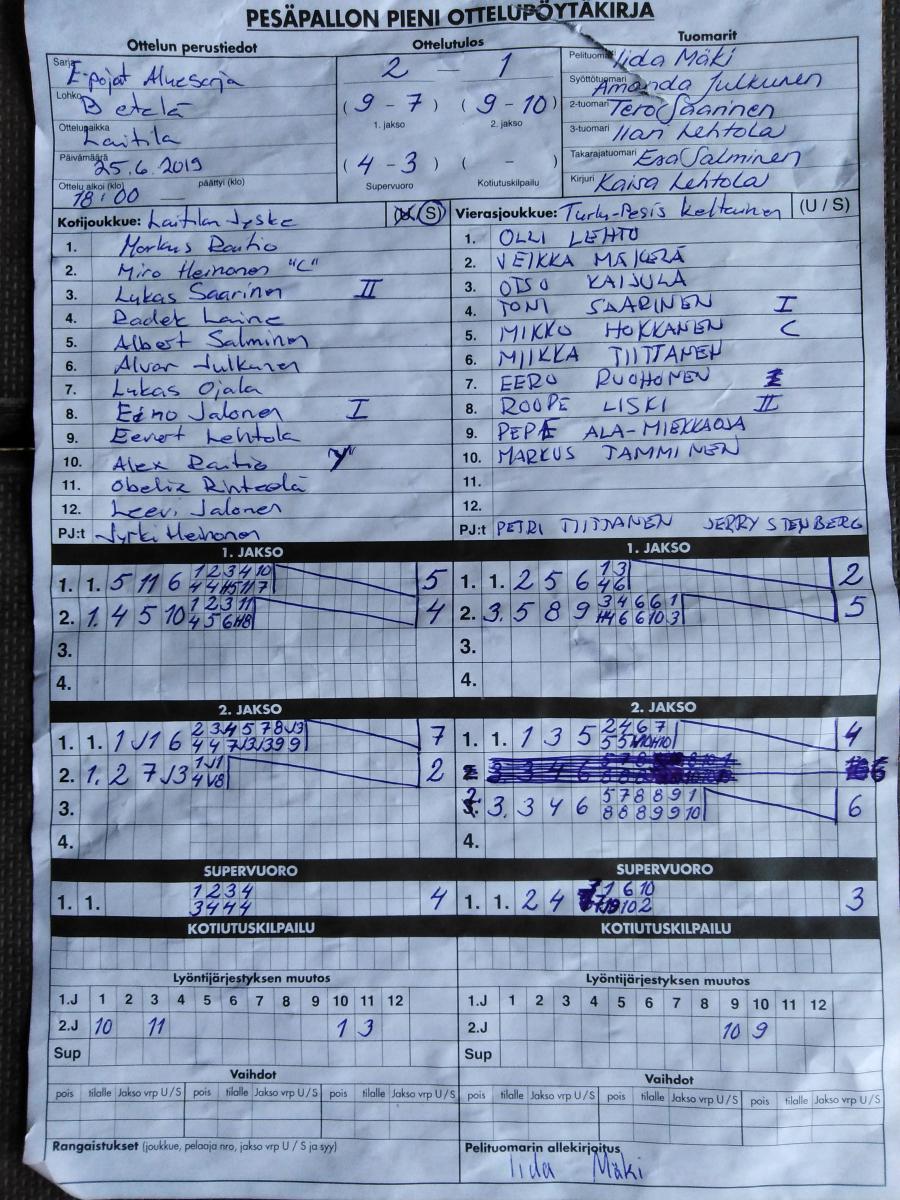 PESÄPALLON PIENI OTTELUPÖYTÄKIRJA
Ottelun perustiedot
Sarja E-pojat Aluesarja
Lohko B etelä
Ottelupaikka Laitila
Päivämäärä 25.6.2019
Ottelu alkoi (klo) 18:00 päättyi (klo) —
Ottelutulos
2 — 1
(9-7) (9-10)
1. jakso 2. jakso
(4-3) ( - )
Supervuoro Kotiutuskilpailu
Tuomarit
Pelituomari Iida Mäki
Syöttötuomari Amanda Julkunen
2-tuomari Tero Saarinen
3-tuomari Ilari Lehtola
Takarajatuomari Esa Salminen
Kirjuri Kaisa Lehtola
Kotijoukkue: Laitilan Jyske (U/S)
1. Markus Rautio
2. Miro Heinonen "C"
3. Lukas Saarinen II
4. Radek Laine
5. Albert Salminen
6. Alvar Julkunen
7. Lukas Ojala
8. Eino Jalonen I
9. Eevert Lehtola
10. Alex Rautio
11. Obelix Rintoola
12. Leevi Jalonen
PJ:t Jyrki Heinonen
Vierasjoukkue: Turku-Pesis Keltainen (U / S)
1. OLLI LEHTO
2. VEIKKA MÄKELÄ
3. OTSO KAIJULA
4. TONI SAARINEN I
5. MIKKO HOKKANEN C
6. MIIKKA TIITTANEN
7. EERO RUOHONEN
8. ROOPE LISKI II
9. ALA-MIEKKAOJA
10. MARKUS TAMMINEN
11.
12.
PJ:t PETRI TIITTANEN JERRY STENBERG
1. JAKSO
1. 1. 5 11 6 1 2 3 4 10 5
2. 1. 4 5 10 1 2 3 11 4
3.
4.
1. JAKSO
1. 1. 2 5 6 1 3 2
4 6
2. 3. 5 8 9 3 4 6 6 1 5
3.
4.
2. JAKSO
1. 1. 1 J1 6 7
2. 1. 2 7 J3 1 J1 2
4 V8
3.
4.
2. JAKSO
1. 1. 1 3 5 2 4 6 7 4
3. 3 4 6 5 7 8 8 9 1 6
8 8 8 9 9 10
4.
SUPERVUORO
1. 1. 1 2 3 4 4
3 4 4 4
SUPERVUORO
1. 1. 2 4 1 6 10 3
10 2
KOTIUTUSKILPAILU
KOTIUTUSKILPAILU
Lyöntijärjestyksen muutos
1.J 1 2 3 4 5 6 7 8 9 10 11 12
2.J 10 11 1 3
Sup
Lyöntijärjestyksen muutos
1.J 1 2 3 4 5 6 7 8 9 10 11 12
2.J 10 9
Sup
Vaihdot
pois tilalle Jakso vrp U/S pois tilalle Jakso vrp U/S pois tilalle Jakso vrp U/S
Vaihdot
pois tilalle Jakso vrp U/S pois tilalle Jakso vrp U/S pois tilalle Jakso vrp U/S
Rangaistukset (joukkue, pelaaja nro, jakso vrp U / S ja syy)
Pelituomarin allekirjoitus
Iida Mäki